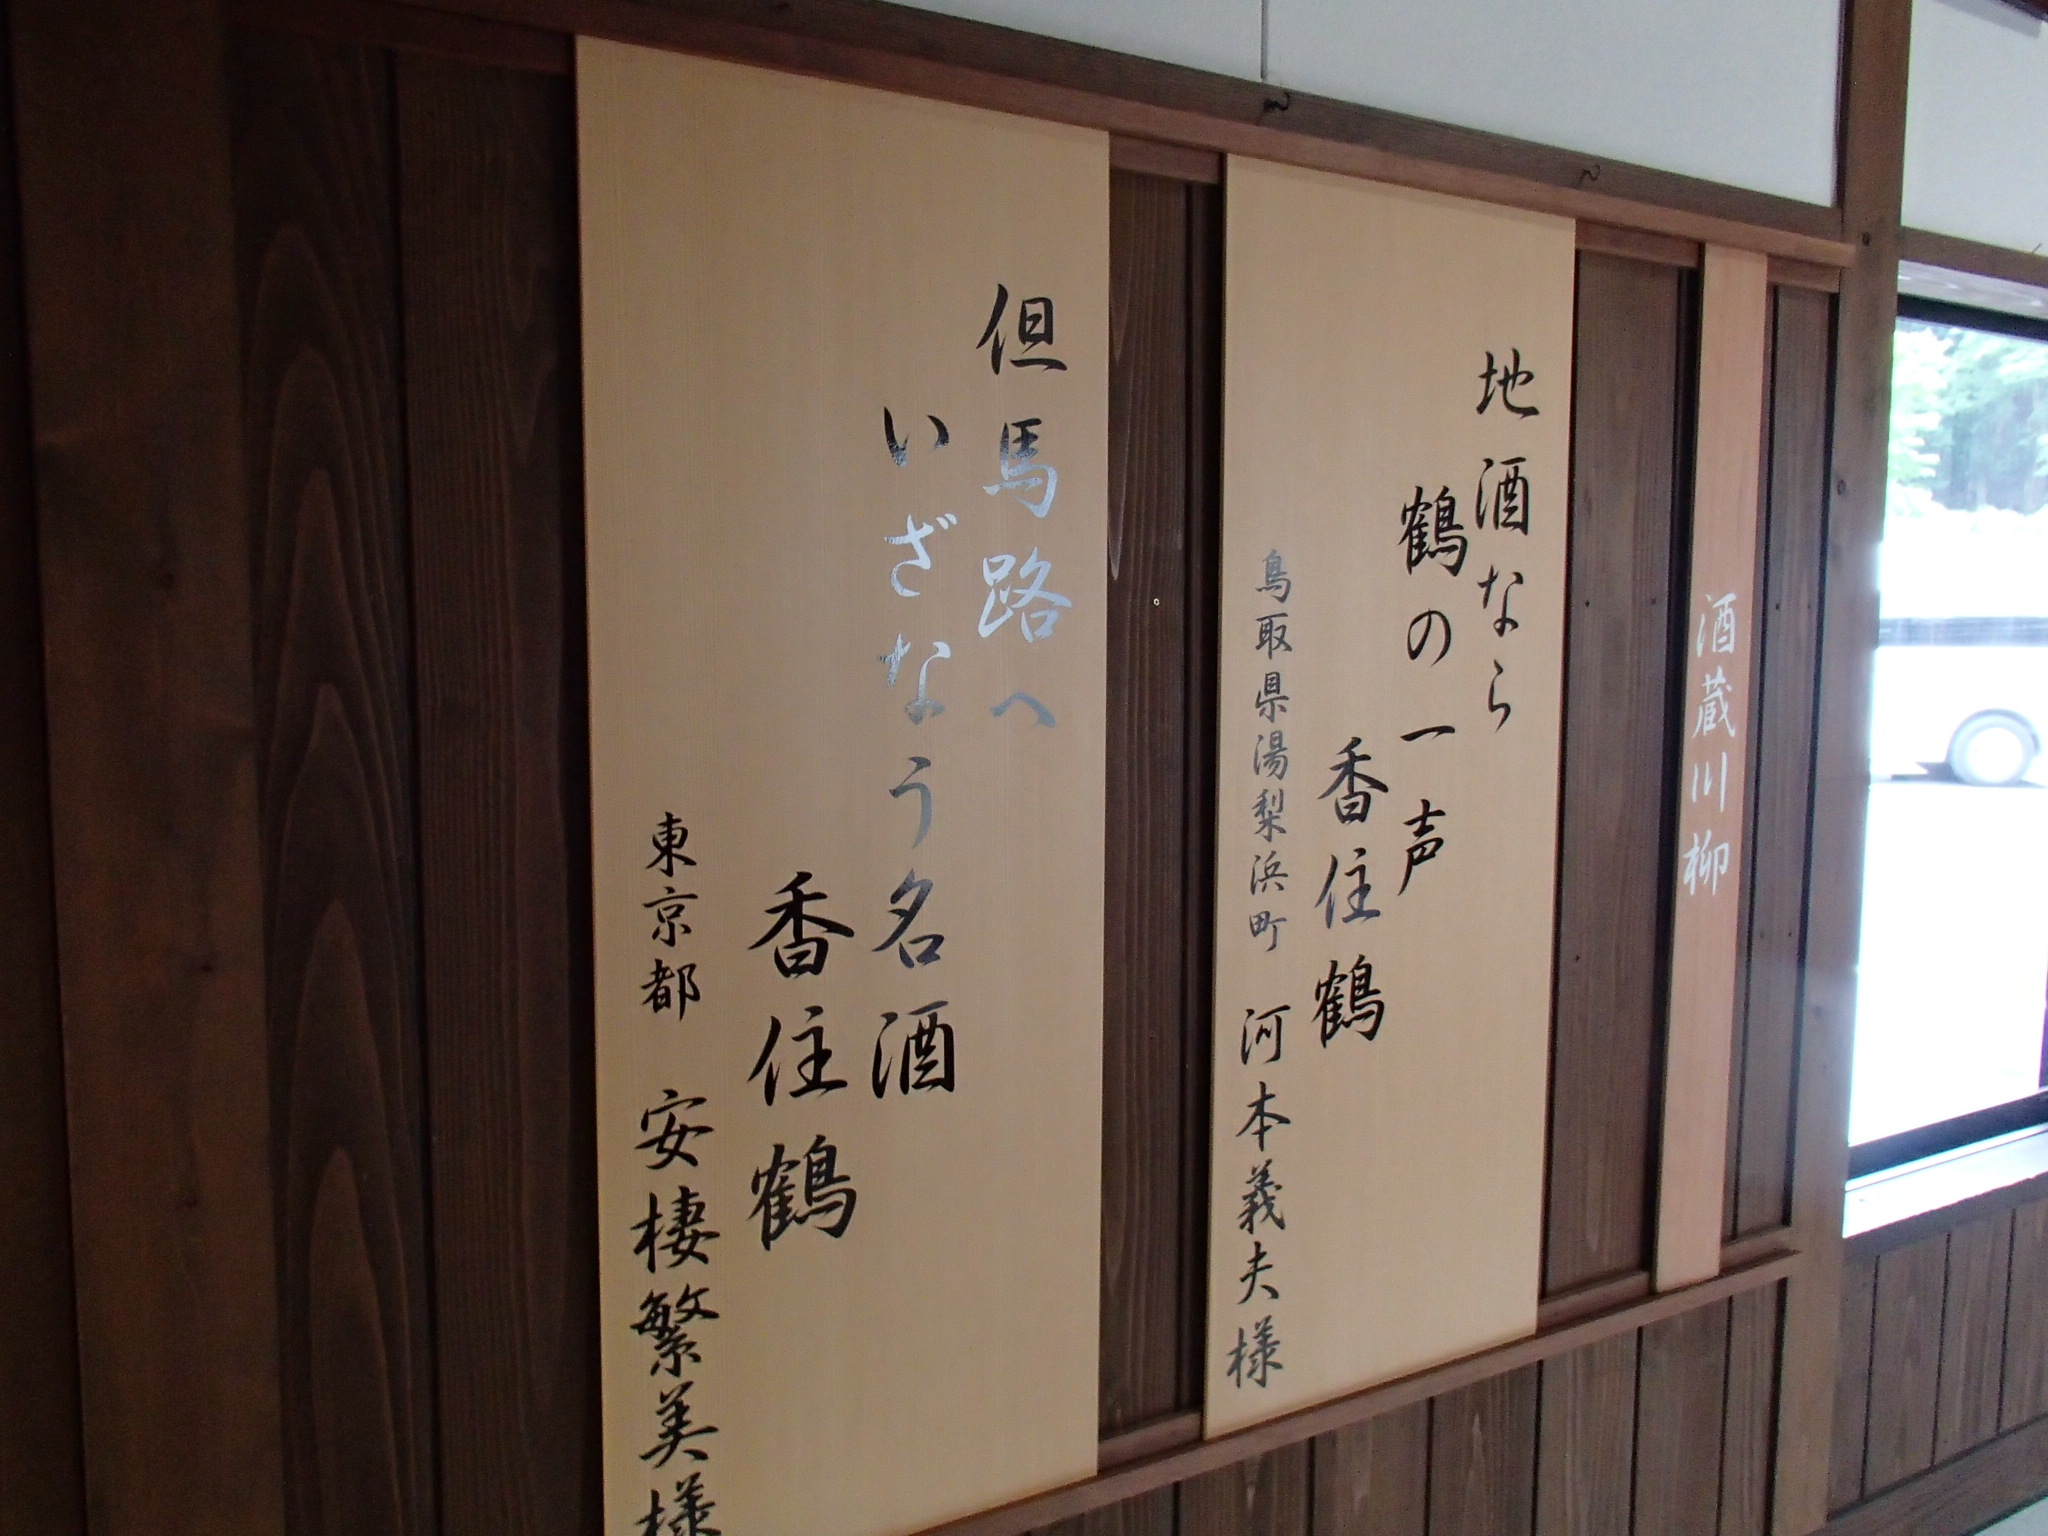 酒蔵川柳
地酒なら
鶴の一声
香住鶴
鳥取県湯梨浜町 河本義夫様
但馬路へ
いざなう名酒
香住鶴
東京都 安棲繁美様